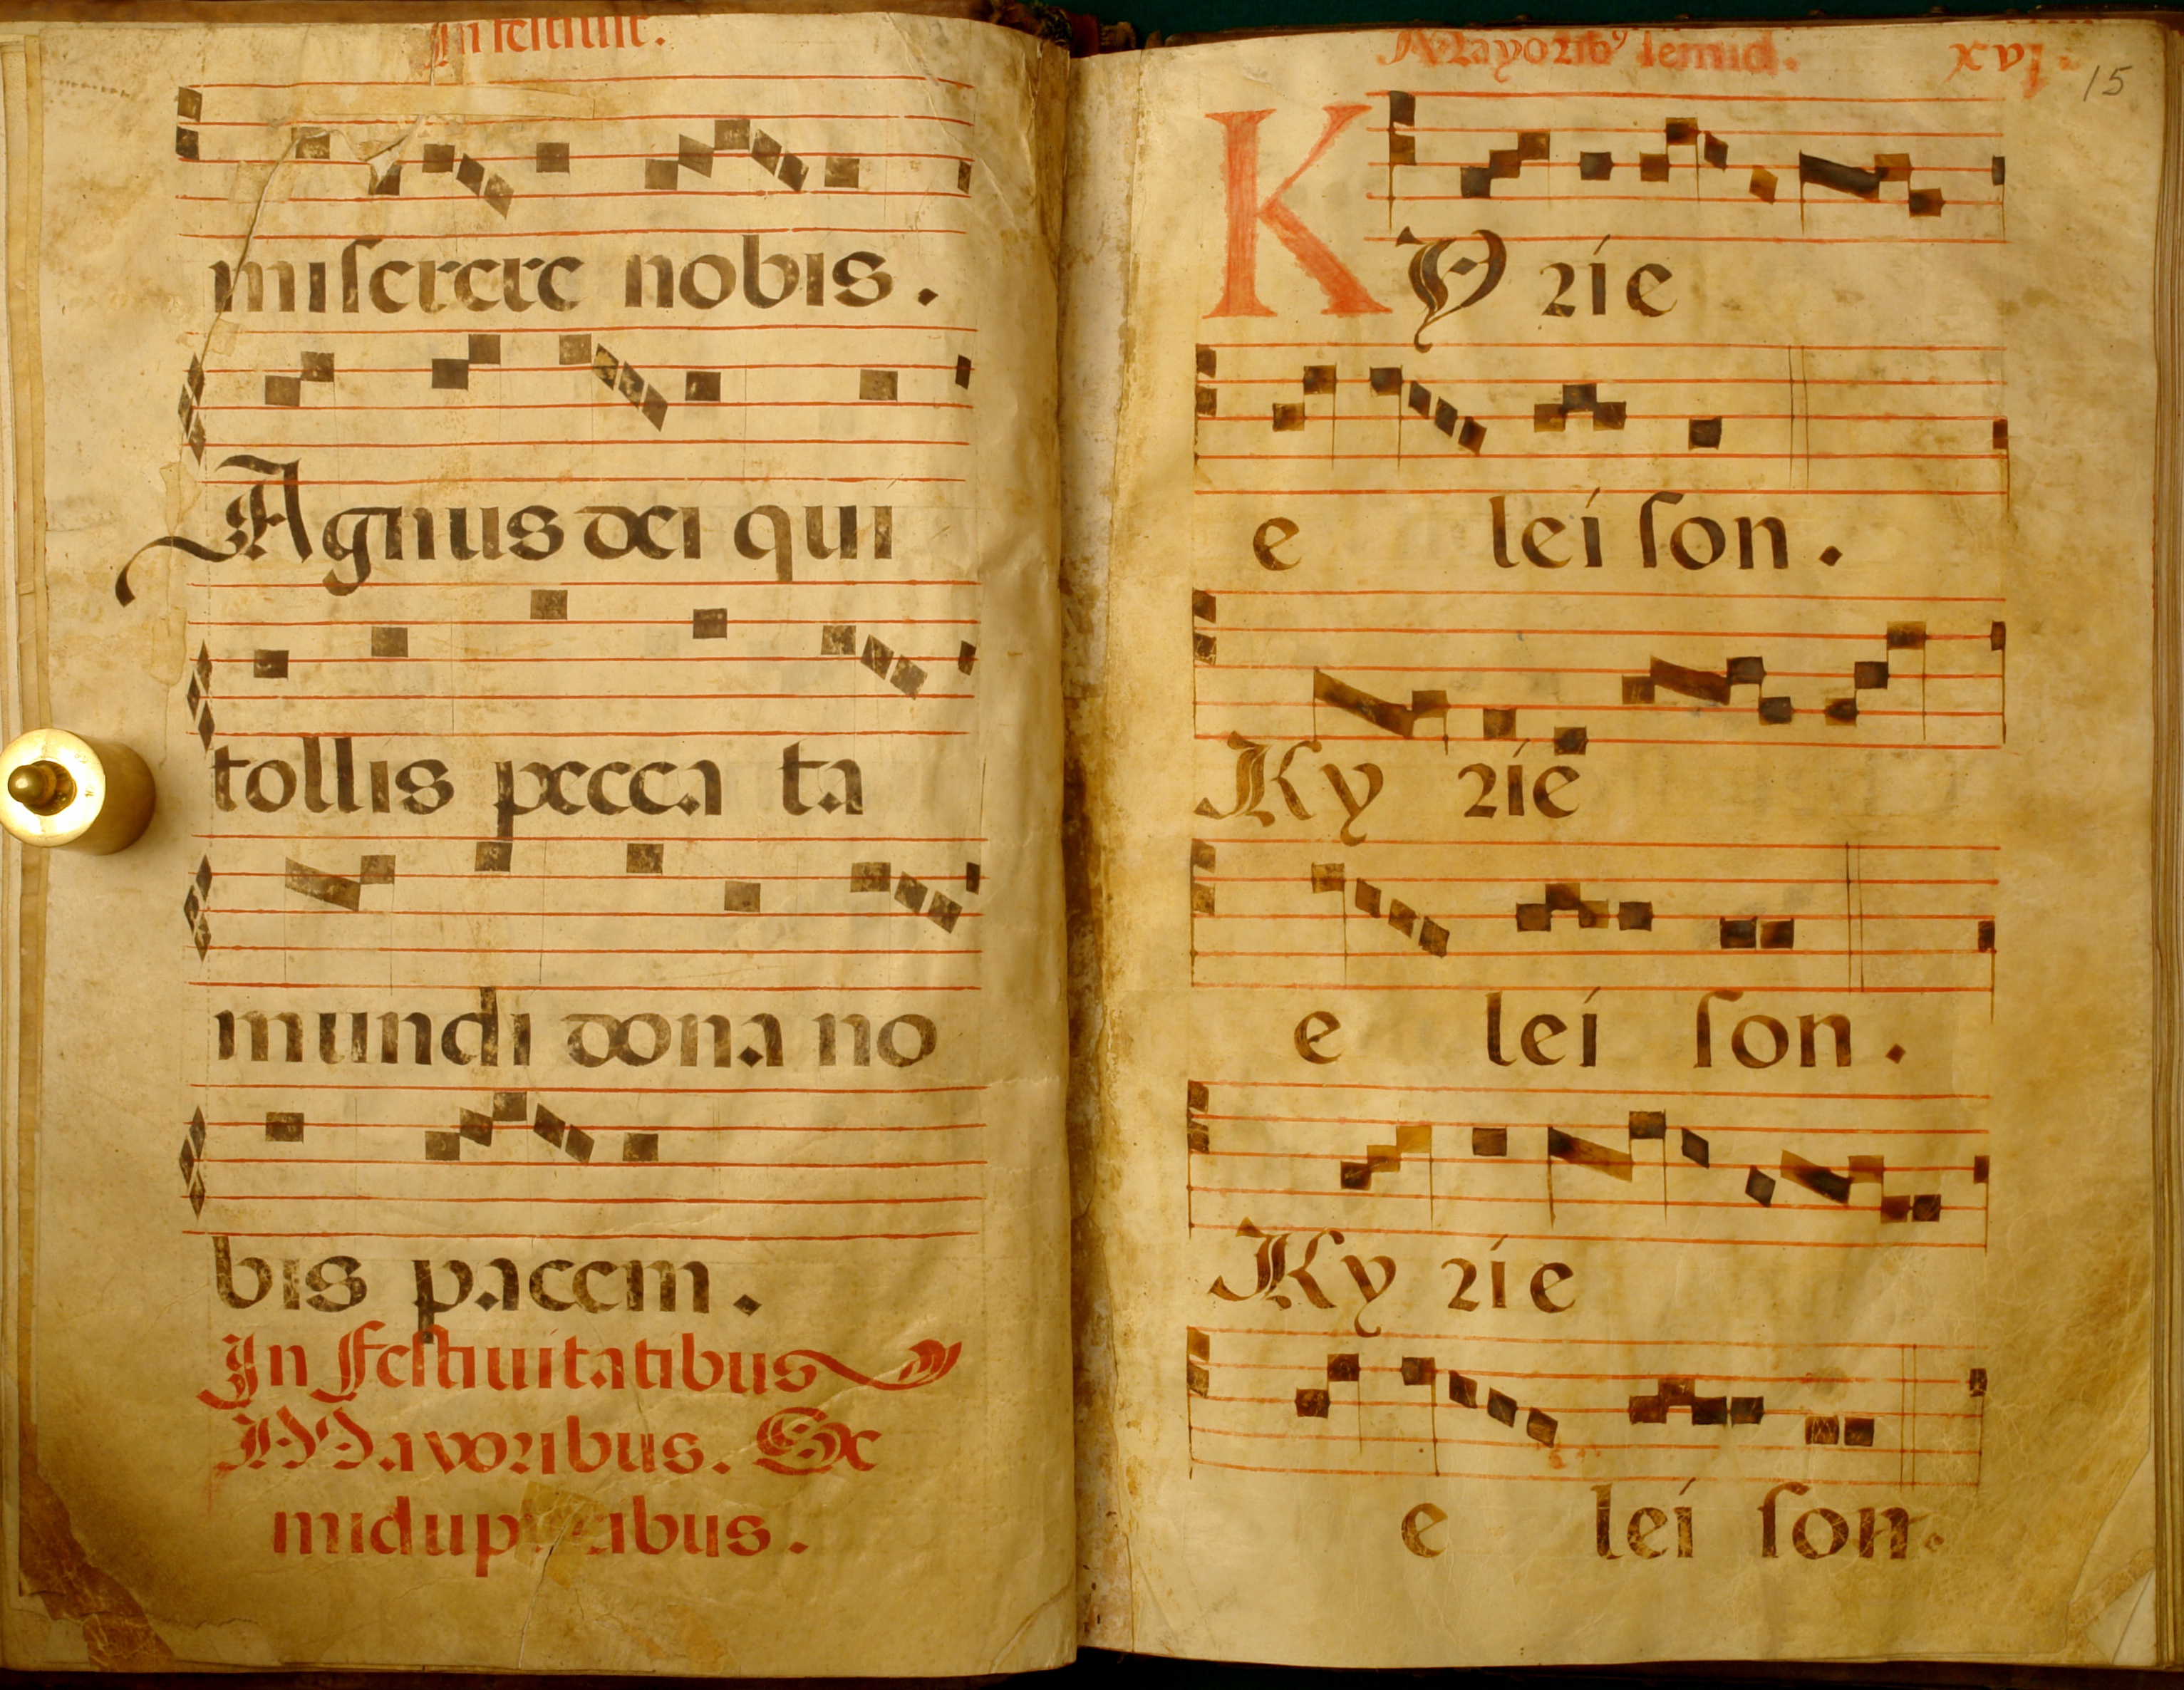 In festiuit.
miserere nobis.
Agnus dei qui
tollis pecca ta
mundi dona no
bis pacem.
In Festiuitatibus
Mayoribus. Se
midup abus.
Mayorib⁹ semid. xvj.
15
KY rie
e lei son.
Ky rie
e lei son.
Ky rie
e lei son.